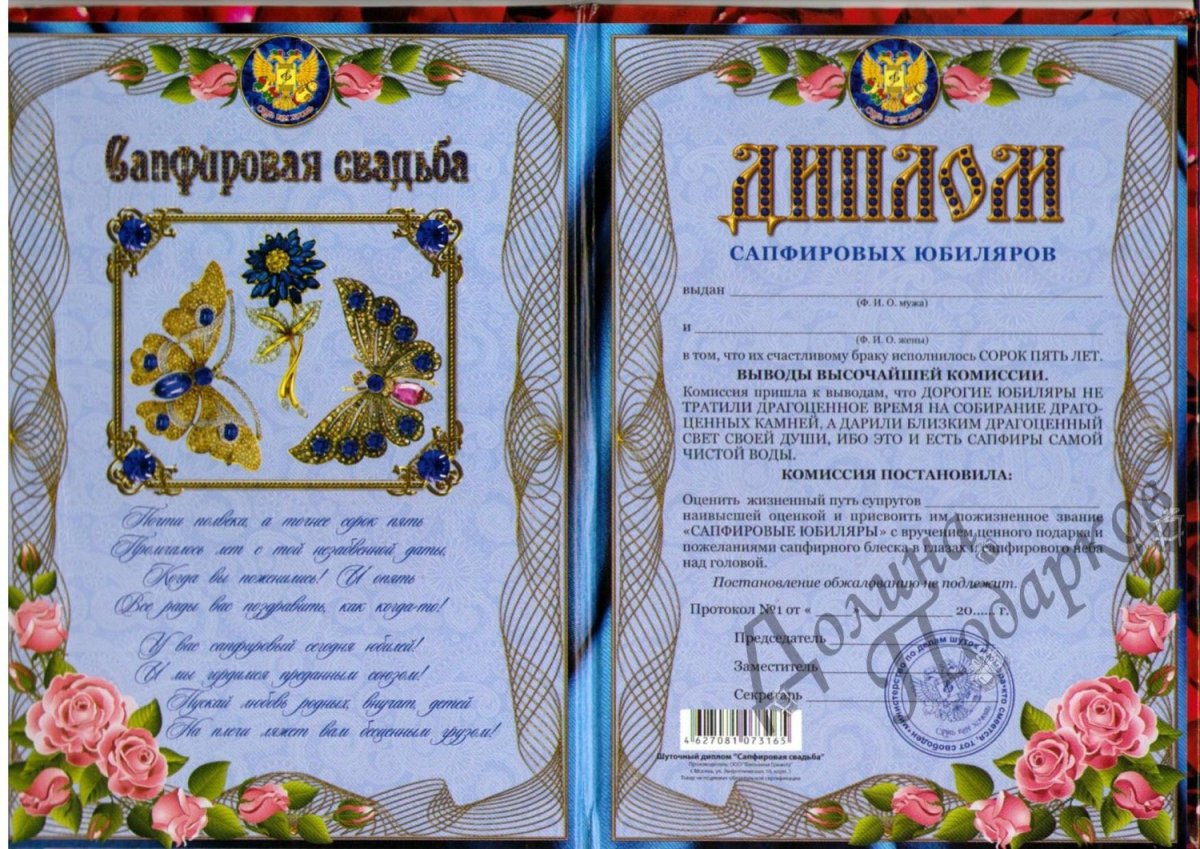 Сапфировая свадьба
Почти полвека, а точнее сорок пять
Промчалось лет с той незабвенной даты,
Когда вы поженились! И опять
Все рады вас поздравить, как когда-то!
У вас сапфировый сегодня юбилей!
И мы гордимся преданным союзом!
Пускай любовь родных, внучат, детей
На плечи ляжет вам бесценным грузом!
ДИПЛОМ
САПФИРОВЫХ ЮБИЛЯРОВ
выдан
(Ф. И. О. мужа)
и
(Ф. И. О. жены)
в том, что их счастливому браку исполнилось СОРОК ПЯТЬ ЛЕТ.
ВЫВОДЫ ВЫСОЧАЙШЕЙ КОМИССИИ.
Комиссия пришла к выводам, что ДОРОГИЕ ЮБИЛЯРЫ НЕ
ТРАТИЛИ ДРАГОЦЕННОЕ ВРЕМЯ НА СОБИРАНИЕ ДРАГО-
ЦЕННЫХ КАМНЕЙ, А ДАРИЛИ БЛИЗКИМ ДРАГОЦЕННЫЙ
СВЕТ СВОЕЙ ДУШИ, ИБО ЭТО И ЕСТЬ САПФИРЫ САМОЙ
ЧИСТОЙ ВОДЫ.
КОМИССИЯ ПОСТАНОВИЛА:
Оценить жизненный путь супругов
наивысшей оценкой и присвоить им пожизненное звание
«САПФИРОВЫЕ ЮБИЛЯРЫ» с вручением ценного подарка и
пожеланиями сапфирного блеска в глазах и сапфирового неба
над головой.
Постановление обжалованию не подлежит.
Протокол №1 от « 20...... г.
Председатель
Заместитель
Секретарь
4 627081 073165
Шуточный диплом "Сапфировая свадьба"
Товар не подлежит обязательной сертификации
министерство по делам шуток и
кто смеется, тот свободен
Долина
Подарков